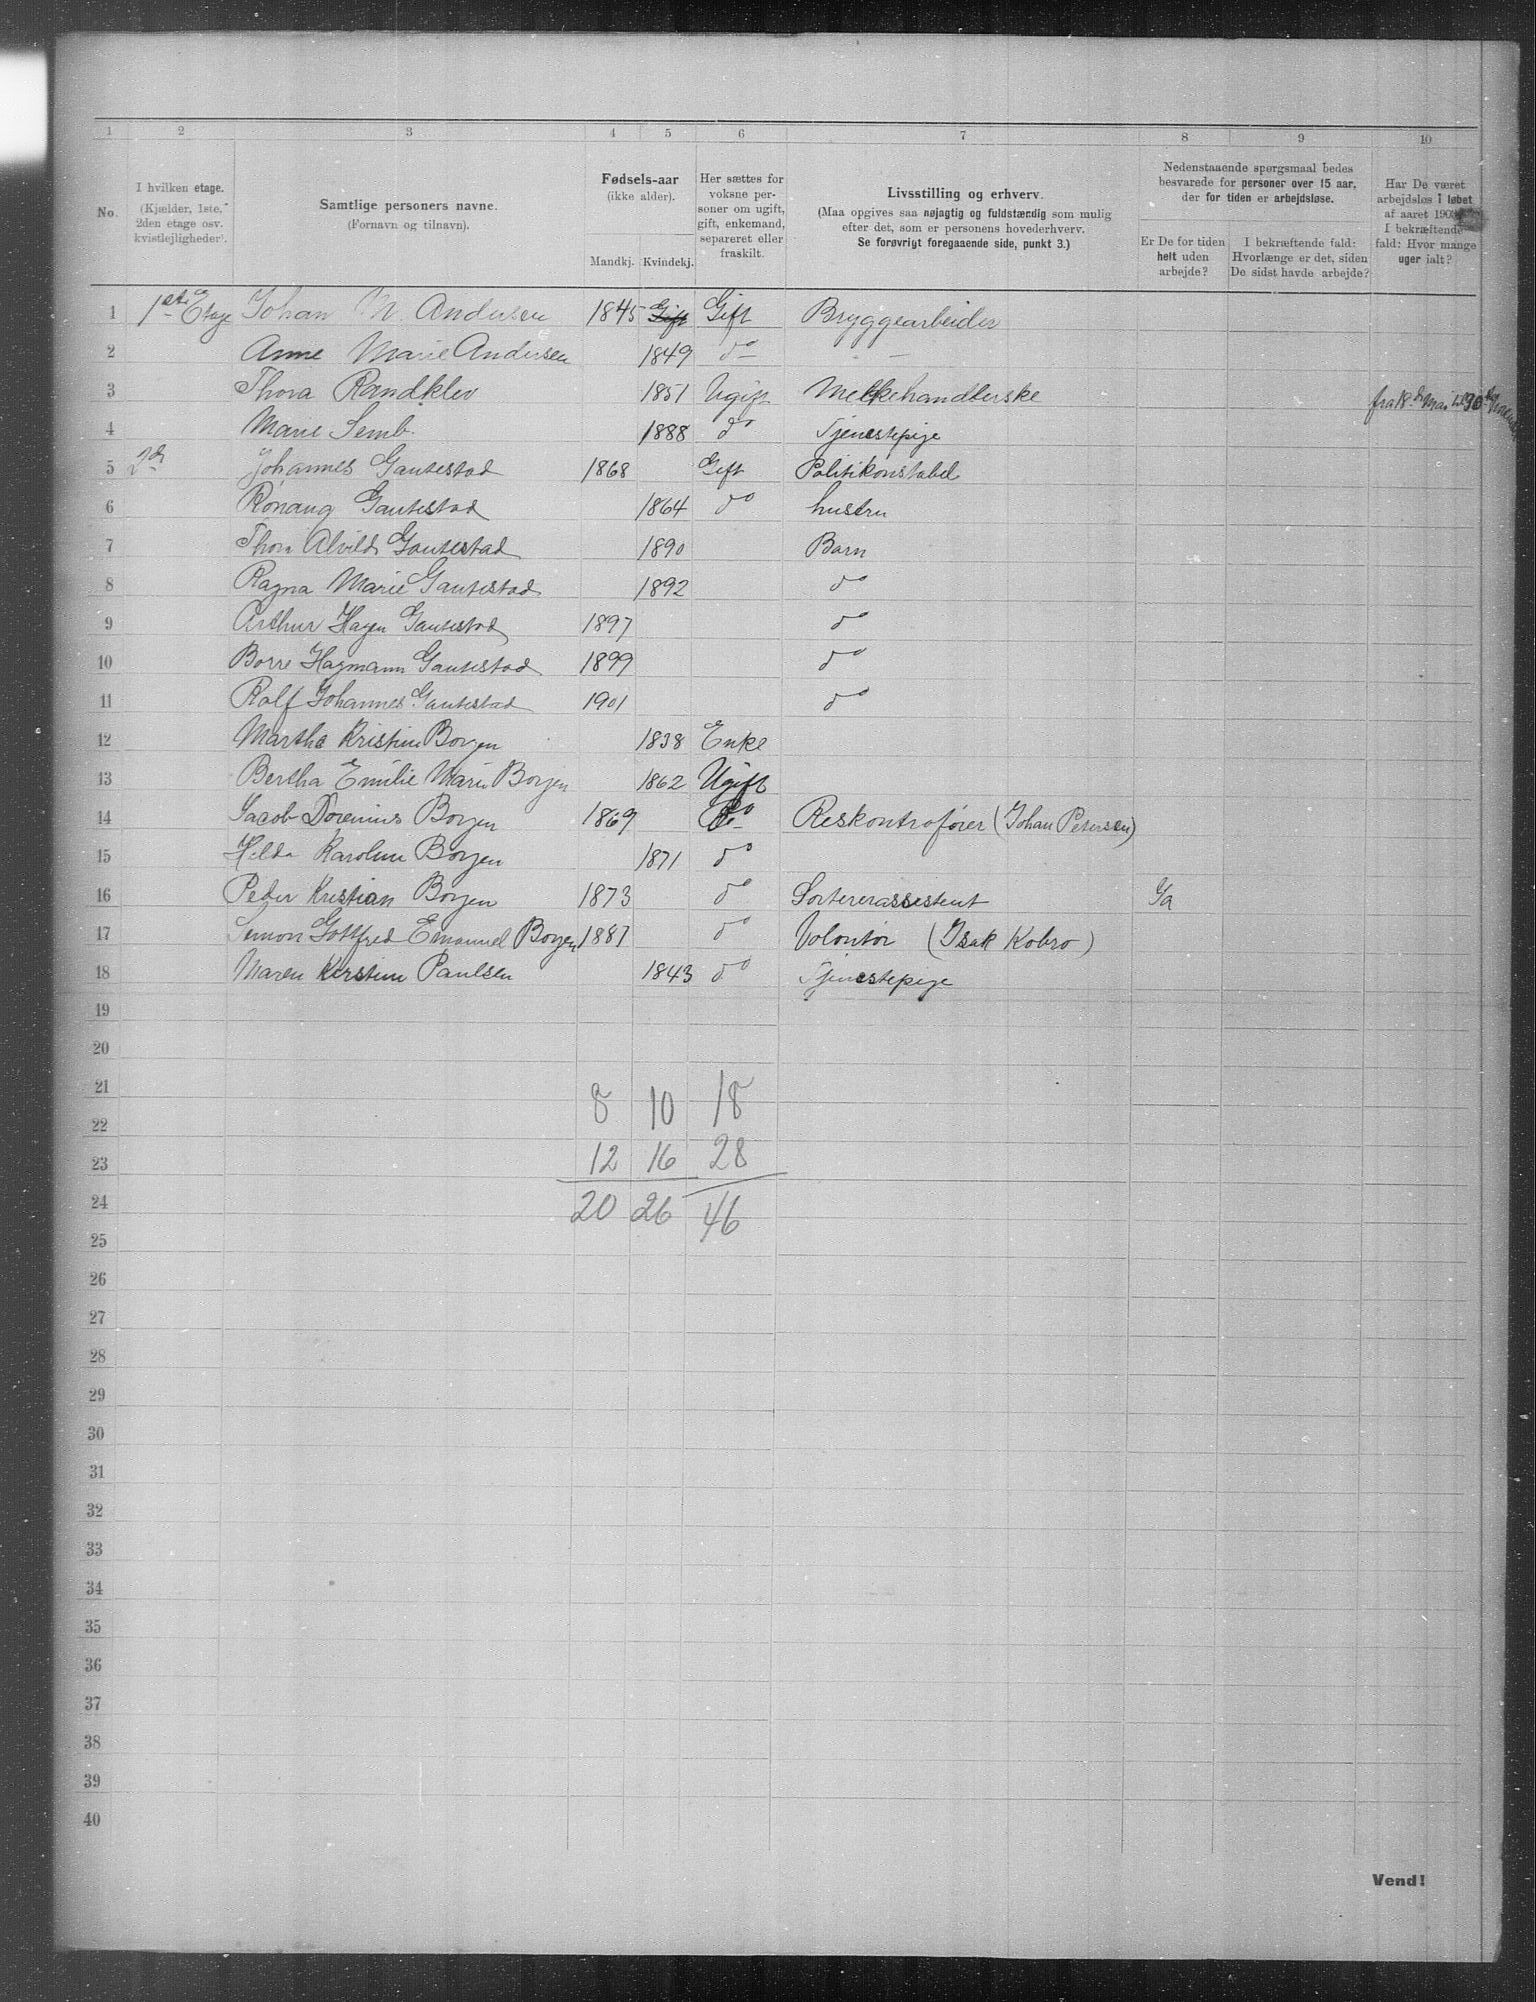 1 2 3 4 5 6 7 8 9 10
No.
I hvilken etage. (Kjælder, 1ste, 2den etage osv. kvistleiligheder).
Samtlige personers navne. (Fornavn og tilnavn).
Fødsels-aar (ikke alder).
Mandkj. Kvindekj.
Her sættes for voksne personer om ugift, gift, enkemand, separeret eller fraskilt.
Livsstilling og erhverv.
(Maa opgives saa nøjagtig og fuldstændig som mulig efter det, som er personens hovederhverv.
Se forøvrigt foregaaende side, punkt 3.)
Nedenstaaende spørgsmaal bedes besvarede for personer over 15 aar, der for tiden er arbejdsløse.
Er De for tiden helt uden arbejde?
I bekræftende fald: Hvorlænge er det, siden De sidst havde arbejde?
Har De været arbejdsløs i løbet af aaret 190 I bekræftende fald: Hvor mange uger ialt?
1 1ste Etage Johan N. Andersen 1845 Gift Gift Bryggearbeider
2 Anne Marie Andersen 1849 do –
3 Thora Randklev 1851 Ugift Melkehandlerske fra 18de Mai til 30
4 Marie Semb 1888 do Tjenestepige
5 2d Johannes Gautestad 1868 Gift Politikonstabel
6 Rönaug Gautestad 1864 do hustru
7 Thora Alvild Gautestad 1890 Barn
8 Ragna Marie Gautestad 1892 do
9 Arthur Hagen Gautestad 1897 do
10 Borre Hagmann Gautestad 1899 do
11 Ralf Johannes Gautestad 1901 do
12 Martha Kristine Borgen 1838 Enke
13 Bertha Emilie Marie Borgen 1862 Ugift
14 Jacob Dorenius Borgen 1869 do Reskontrofører (Johan Petersen)
15 Hilda Karoline Borgen 1871 do
16 Peder Kristian Borgen 1873 do Sortererassistent Ja
17 Simon Gottfred Emanuel Borgen 1881 do Volontør (Isak Kobro)
18 Maren Kirstine Paulsen 1843 do Tjenestepige
19
20
21 8 10 18
22
23 12 16 28
24 20 26 46
25
26
27
28
29
30
31
32
33
34
35
36
37
38
39
40
Vend!